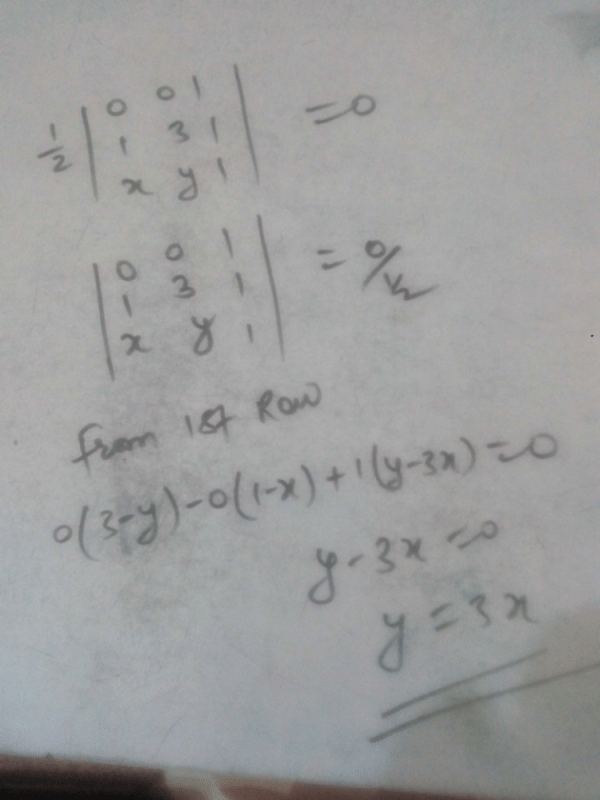 1/2 | 0 0 1 | = 0
| 1 3 1 |
| x y 1 |
| 0 0 1 | = 0/1/2
| 1 3 1 |
| x y 1 |
from 1st Row
0(3-y)-0(1-x)+1(y-3x)=0
y-3x=0
y=3x